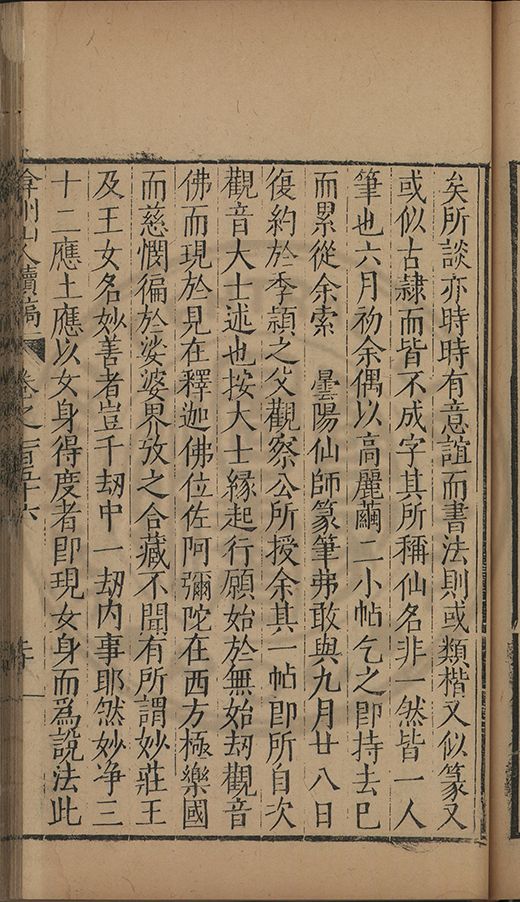 矣所談亦時時有意誼而書法則或類楷又似篆又
或似古隸而皆不成字其所稱仙名非一然皆一人
筆也六月初余偶以高麗繭二小帖乞之即持去已
而累從余索　曇陽仙師篆筆弗敢與九月廿八日
復約於季頴之父觀察公所授余其一帖即所自次
觀音大士述也按大士縁起行願始於無始刼觀音
佛而現於見在釋迦佛位佐阿彌陀在西方極樂國
而慈憫徧於娑婆界攷之合藏不聞有所謂妙莊王
及王女名妙善者豈千刼中一刼内事耶然妙净三
十二應土應以女身得度者即現女身而爲說法此
弇州山人續稿　卷之一百五十六